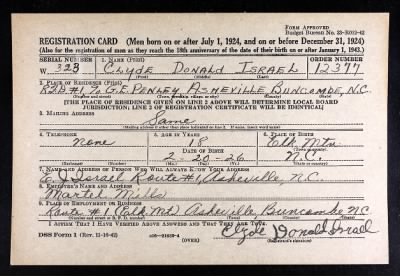 FORM APPROVED
Budget Bureau No. 33-R012-42
REGISTRATION CARD (Men born on or after July 1, 1924, and on or before December 31, 1924)
(Also for the registration of men as they reach the 18th anniversary of the date of their birth on or after January 1, 1943.)
SERIAL NUMBER 1. NAME (Print) ORDER NUMBER
W 323 CLYDE DONALD ISRAEL 12377
(First) (Middle) (Last)
2. PLACE OF RESIDENCE (Print)
R.F.D. #1 % G.E. PENLEY ASHEVILLE BUNCOMBE, N.C.
[THE PLACE OF RESIDENCE GIVEN ON LINE 2 ABOVE WILL DETERMINE LOCAL BOARD
JURISDICTION; LINE 2 OF REGISTRATION CERTIFICATE WILL BE IDENTICAL]
3. MAILING ADDRESS
Same
[Mailing address if other than place indicated on line 2. If same, insert word same]
4. TELEPHONE 5. AGE IN YEARS 6. PLACE OF BIRTH
None 18 Elk Mtn.
DATE OF BIRTH
2-20-26 N.C.
(Exchange) (Number) (Mo.) (Day) (Yr.) (State or country)
7. NAME AND ADDRESS OF PERSON WHO WILL ALWAYS KNOW YOUR ADDRESS
E. J. Israel Route #1, Asheville, N.C.
8. EMPLOYER'S NAME AND ADDRESS
Martel Mills
9. PLACE OF EMPLOYMENT OR BUSINESS
Route #1 (Elk Mt) Asheville Buncombe N.C.
(Number and street or R. F. D. number) (Town) (County) (State)
I AFFIRM THAT I HAVE VERIFIED ABOVE ANSWERS AND THAT THEY ARE TRUE.
DSS Form 1 (Rev. 11-16-42) (OVER) Clyde Donald Israel
(Registrant's signature)